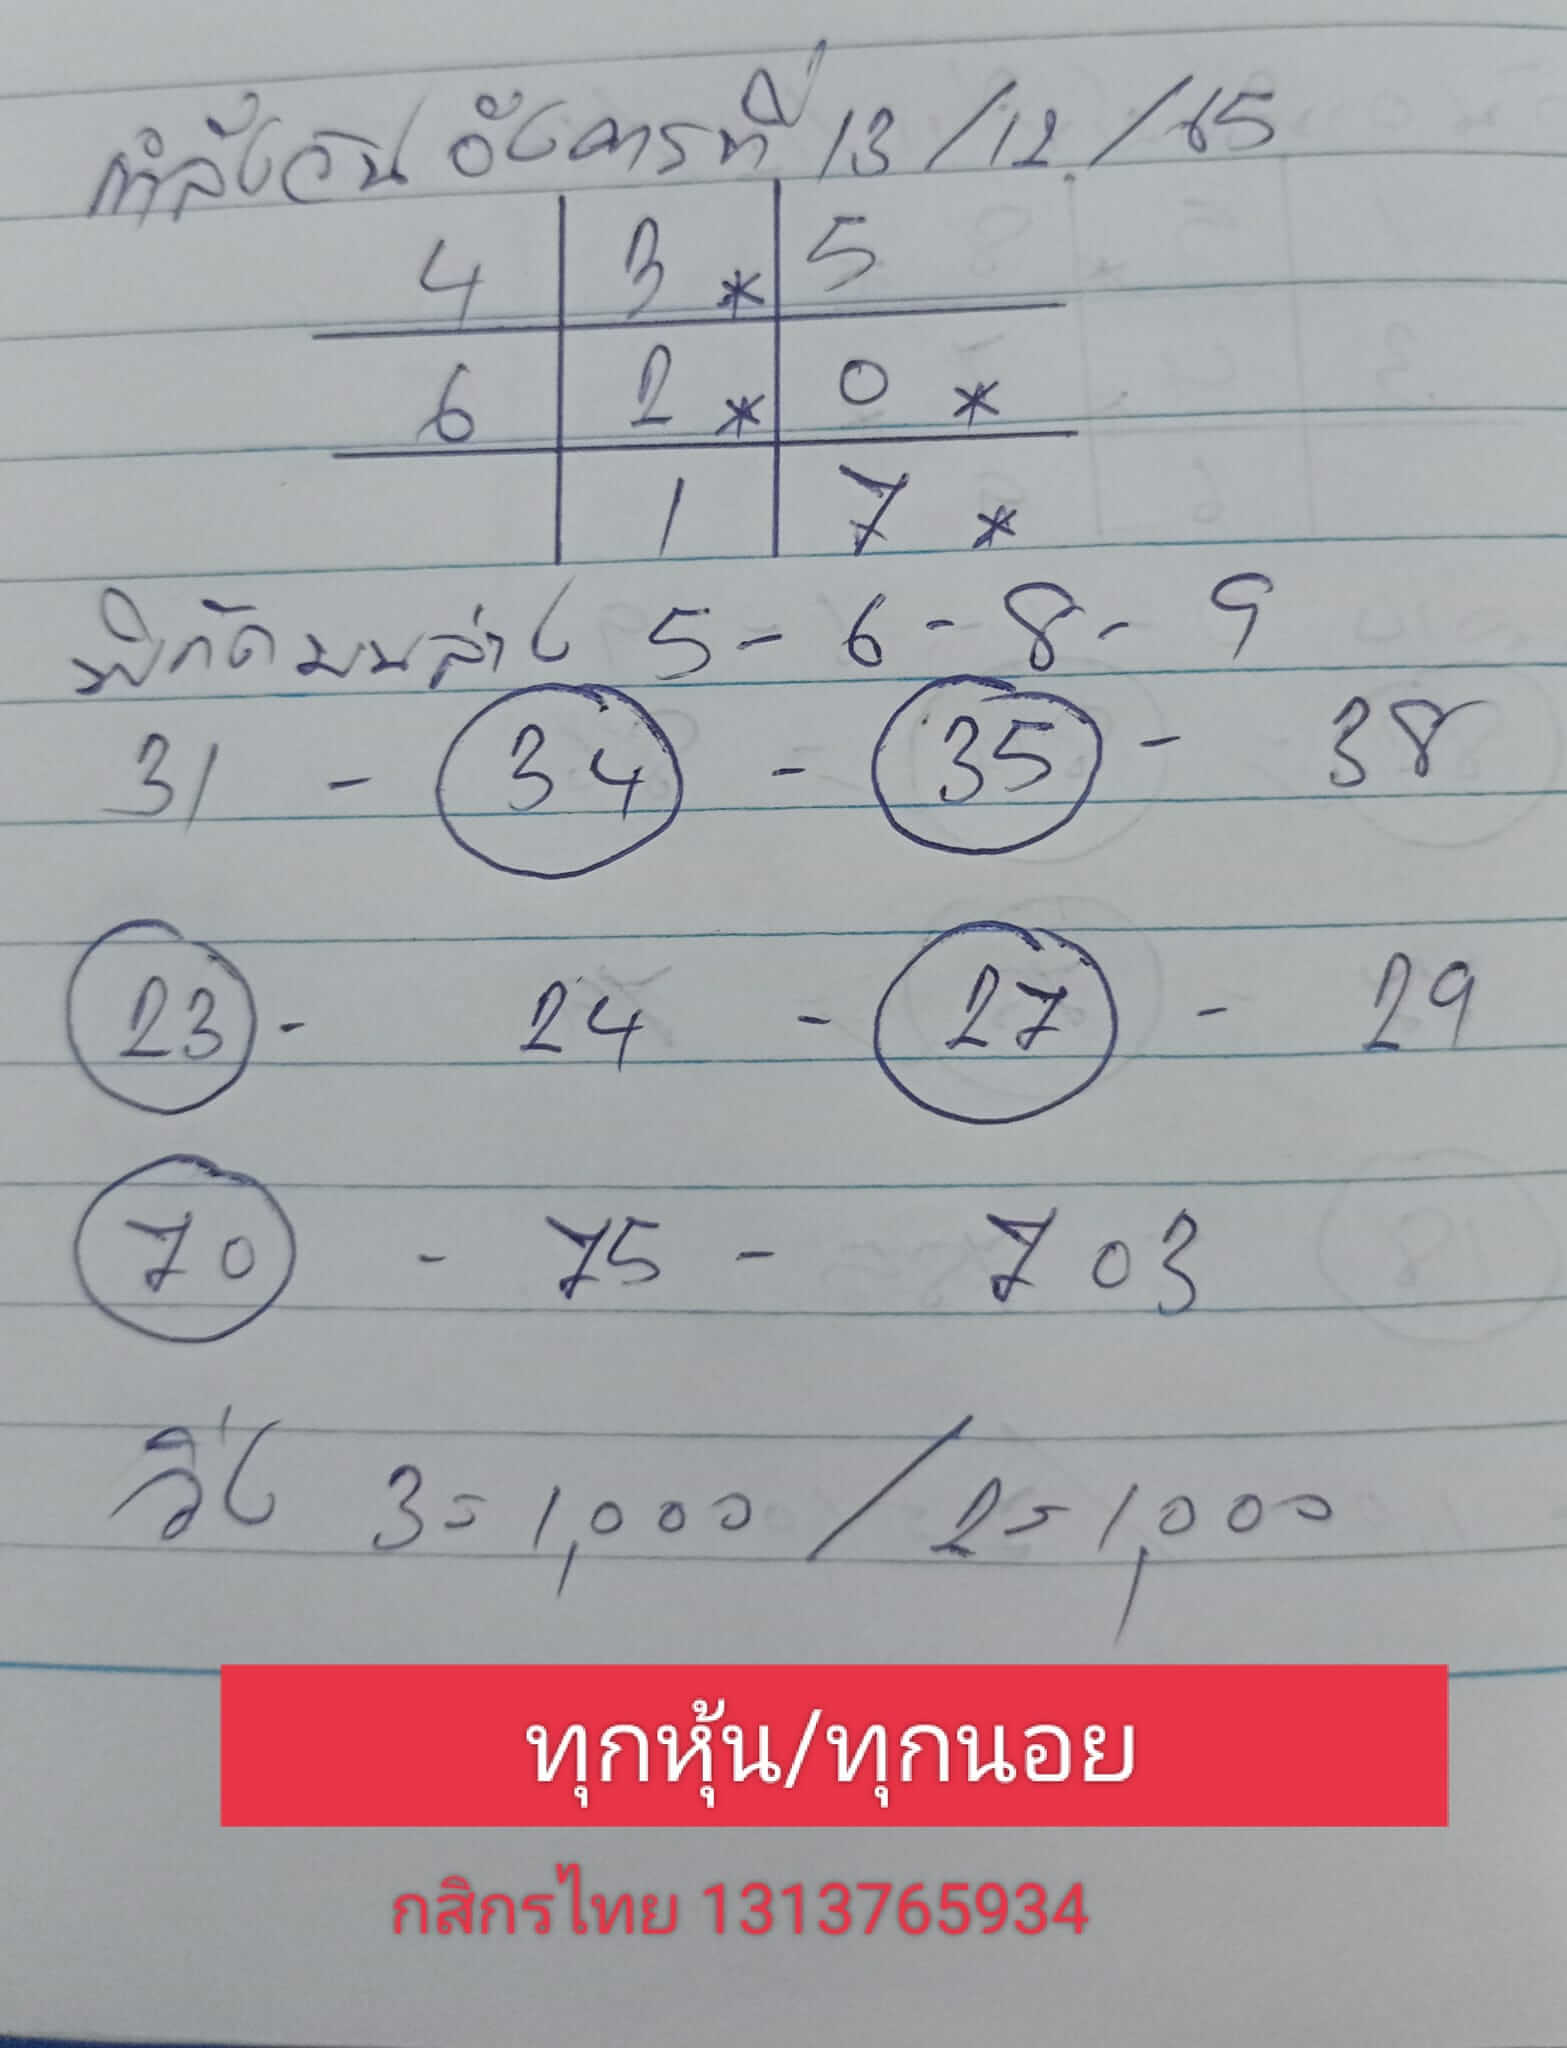 กำลังวัน อังคารที่ 13/12/65
4 3* 5
6 2* 0*
1 7*
พิกัดบนล่าง 5-6-8-9
31 - 34 - 35 - 38
23 - 24 - 27 - 29
70 - 75 - 703
วิ่ง 3=1,000/2=1,000
ทุกหุ้น/ทุกนอย
กสิกรไทย 1313765934